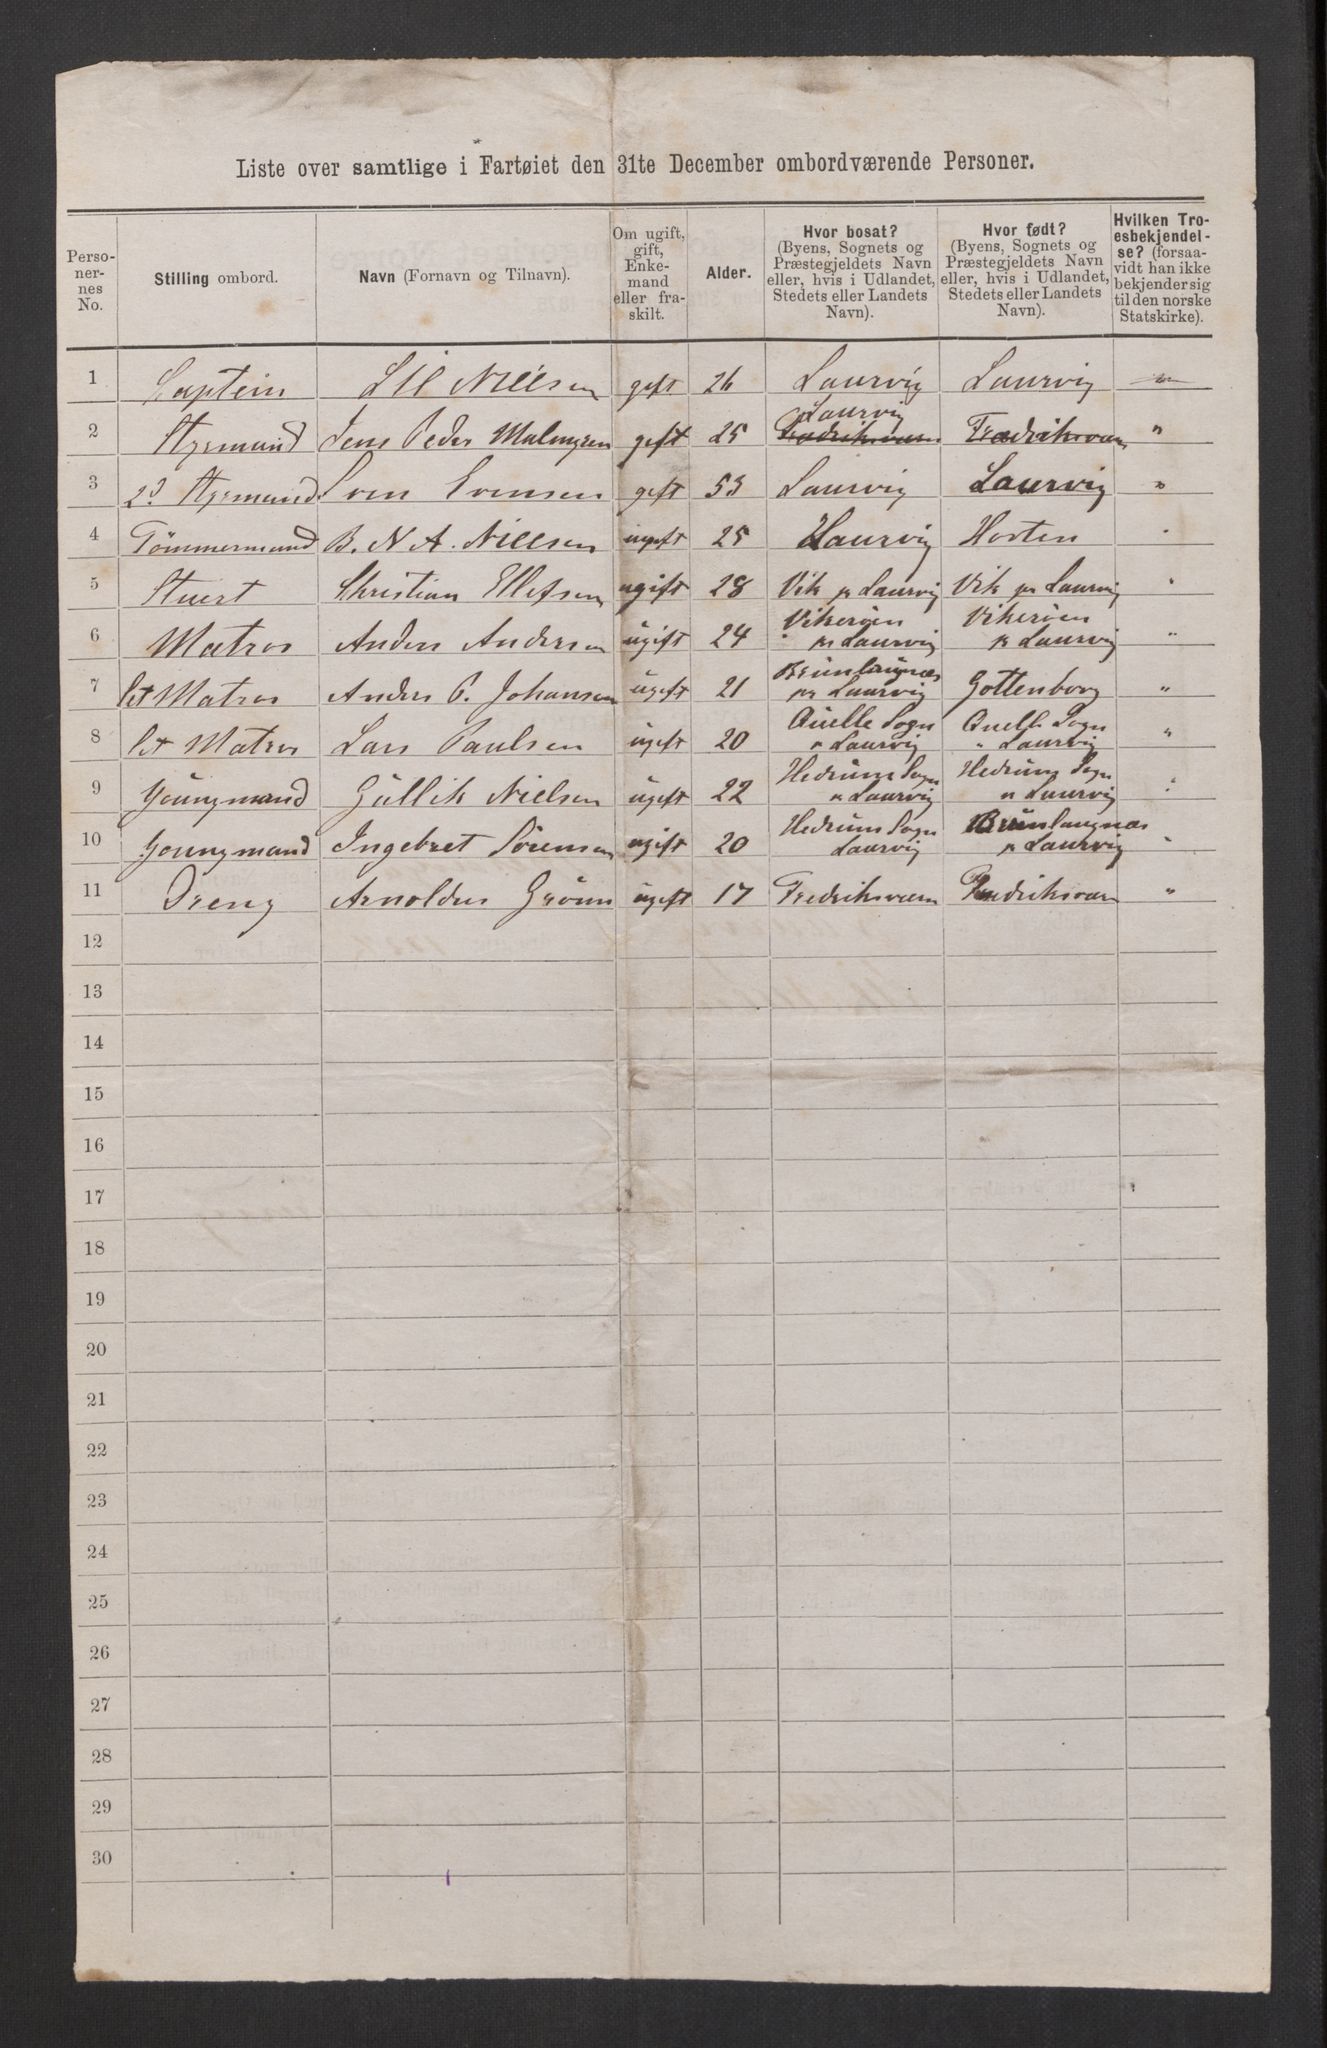 Liste over samtlige i Fartøiet den 31te December ombordværende Personer.
Perso-
ner-
nes
No.
Stilling ombord.
Navn (Fornavn og Tilnavn).
Om ugift,
gift,
Enke-
mand
eller fra-
skilt.
Alder.
Hvor bosat?
(Byens, Sognets og
Præstegjeldets Navn
eller, hvis i Udlandet,
Stedets eller Landets
Navn).
Hvor født?
(Byens, Sognets og
Præstegjeldets Navn
eller, hvis i Udlandet,
Stedets eller Landets
Navn).
Hvilken Tro-
esbekjendel-
se? (forsaa-
vidt han ikke
bekjender sig
til den norske
Statskirke).
1 Captein Nielsen gift 26 Laurvig Laurvig
Laurvig
2 Styrmand Jens Peder Malmgren gift 25 Fredriksværn Fredriksværn "
3 2d Styrmand Sven Evensen gift 53 Laurvig Laurvig "
4 Tömmermand B. N. A. Nielsen ugift 25 Laurvig Horten "
5 Stuert Christian Ellefsen ugift 28 Vik pr Laurvig Vik pr Laurvig "
6 Matros Anders Andersen ugift 24 Vikeröen pr Laurvig Vikeröen pr Laurvig "
7 Let Matros Anders P. Johansen ugift 21 Brunlaugnæs pr Laurvig Gottenborg "
8 Let Matros Lars Paulsen ugift 20 Quelle Sogn " Laurvig Quelle Sogn " Laurvig "
9 Youngmand Gullik Nielsen ugift 22 Hedrum Sogn " Laurvig Hedrum Sogn " Laurvig "
10 Youngmand Ingebret Sörensen ugift 20 Hedrum Sogn Laurvig Brunlaugnæs pr Laurvig "
11 Dreng Arnoldus Grönn ugift 17 Fredriksværn Fredriksværn "
12
13
14
15
16
17
18
19
20
21
22
23
24
25
26
27
28
29
30